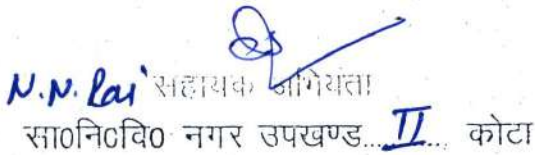 N.N. Rai सहायक अभियंता
सा0नि0वि0 नगर उपखण्ड...II... कोटा